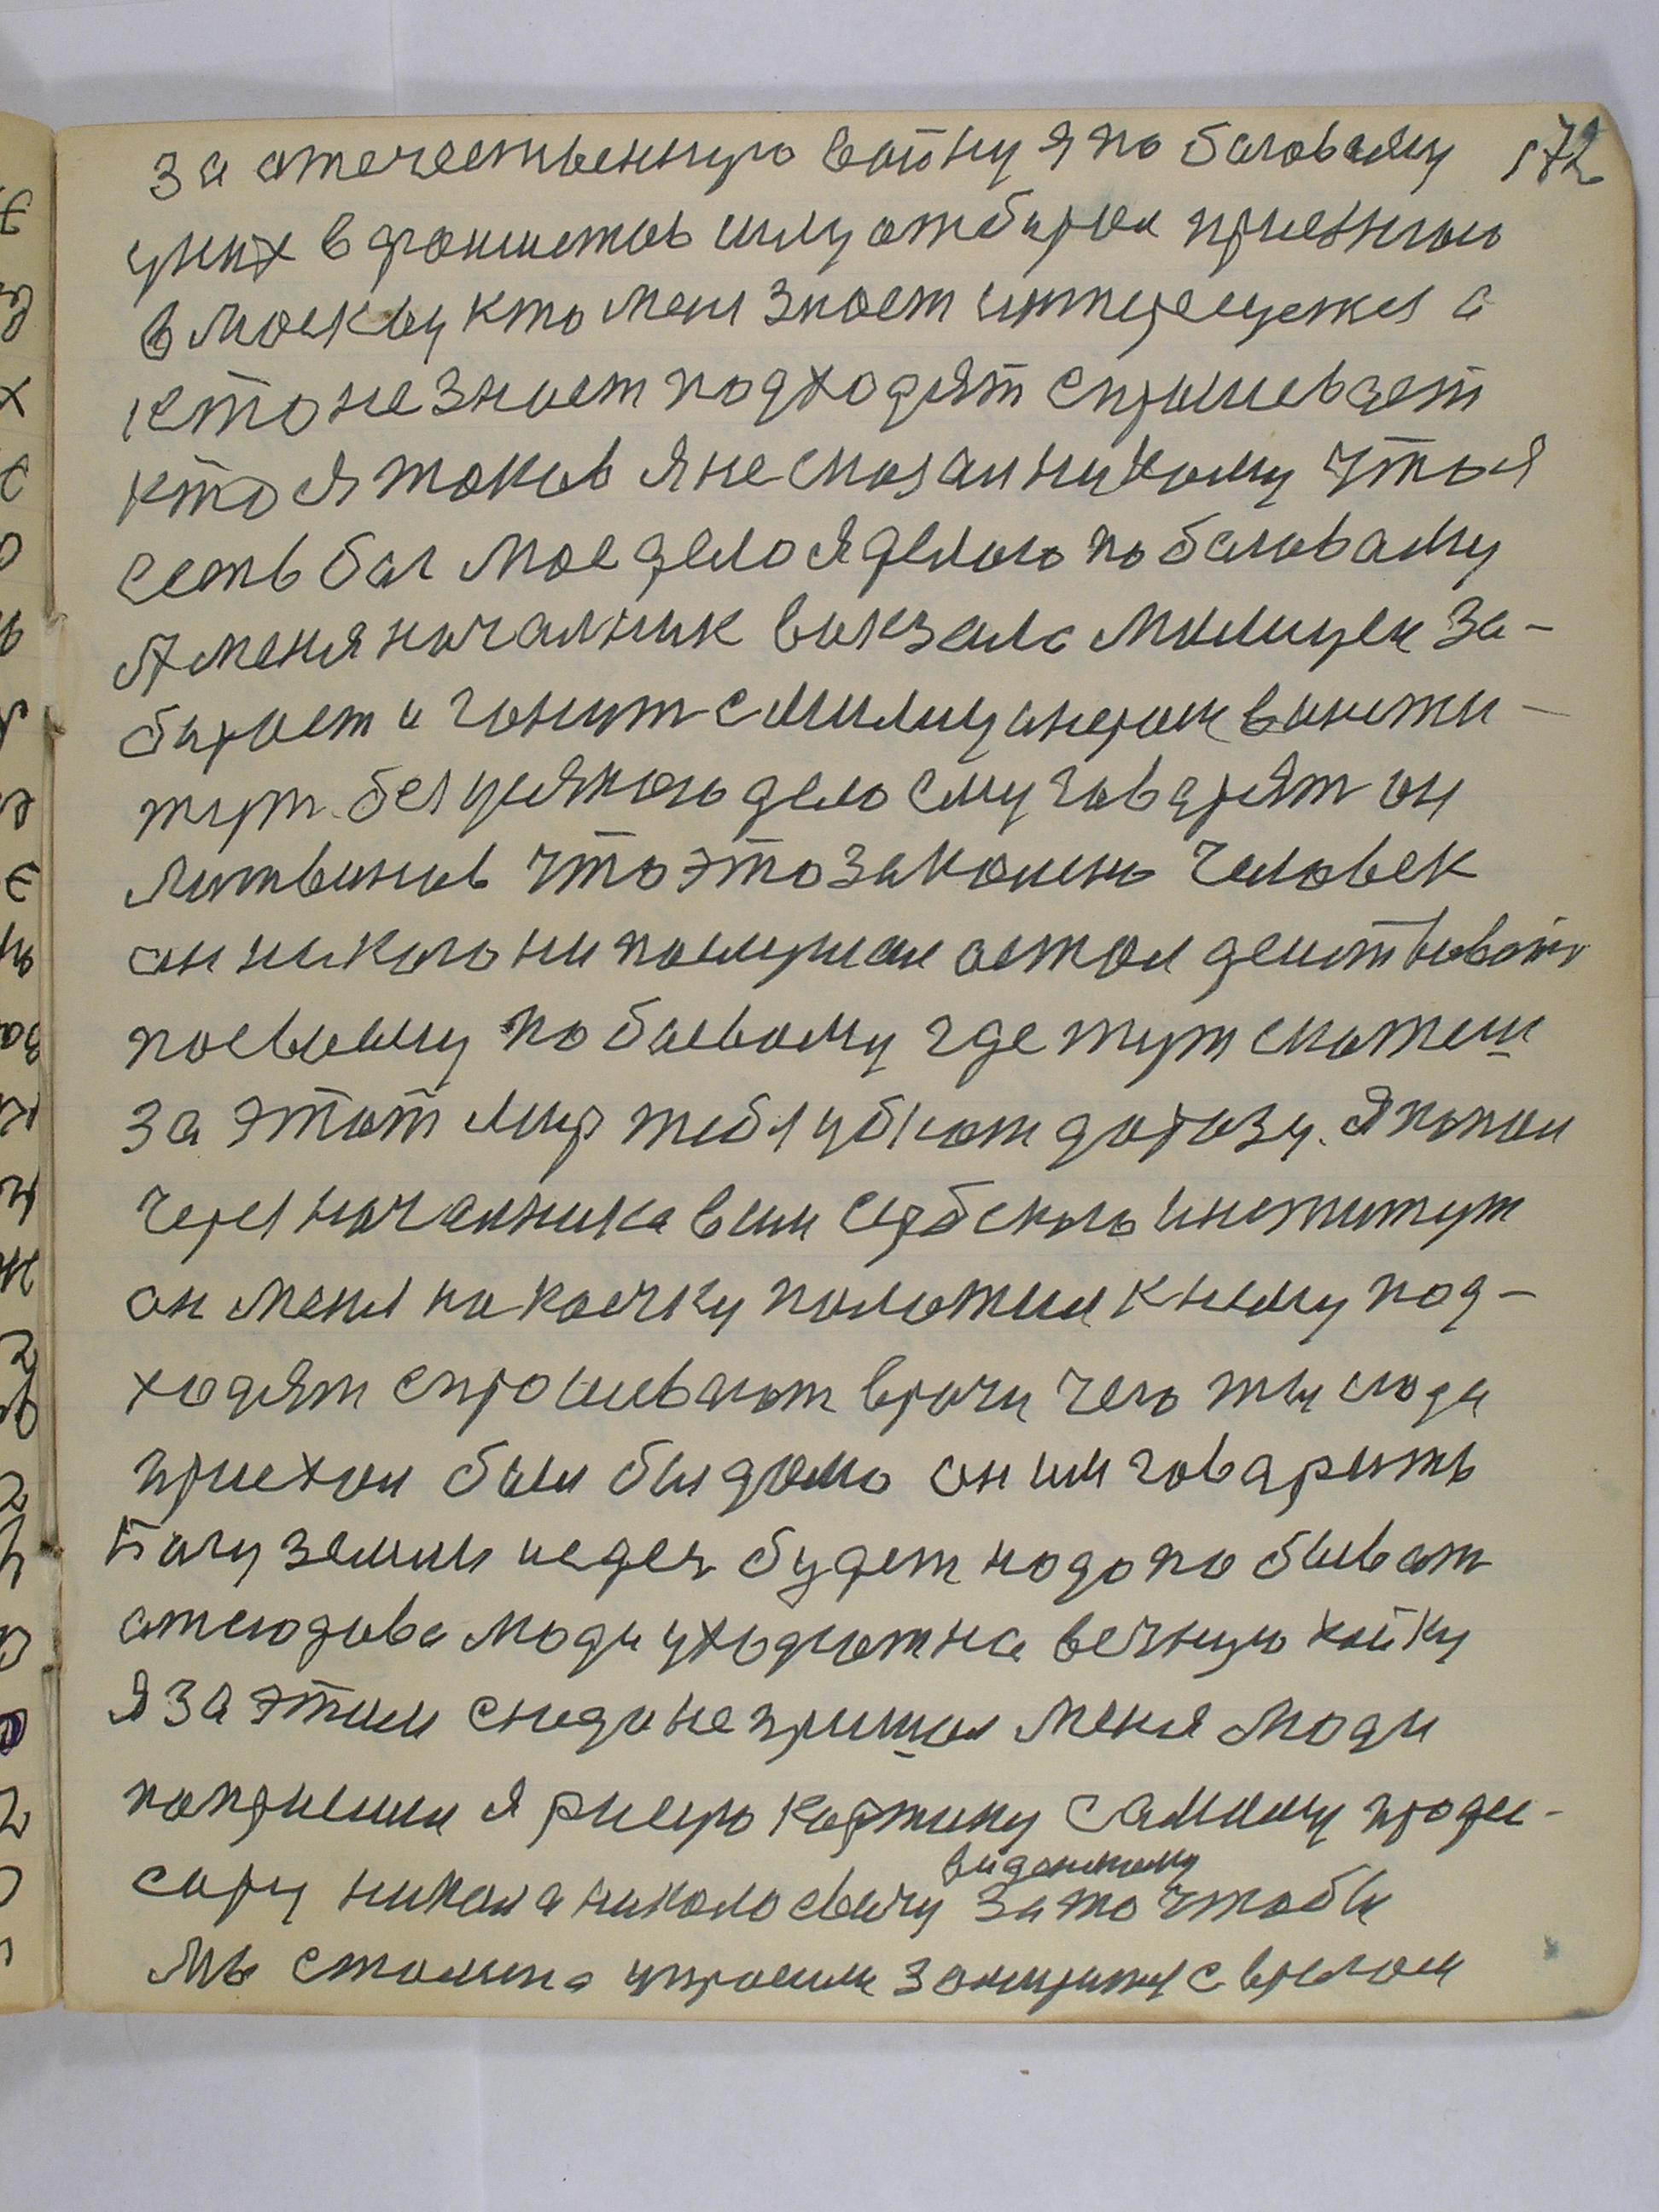 за отечественную войну я по баговаму 172
у них в фошистов силу отбирал приезжаю
в Москву кто меня знает интересуется а
кто не знает подходят спрашевает
кто я таков я не сказал никому что я
есть бог Мое дело я делаю по баговаму
А меня началник вокзала милицеи за-
бирает и гонит с милицанером в инсти-
тут. без усякого дело ему говорят он
литвинов что это законень человек
он никого ни послушал астал действовать
посвоему по боевому где тут скажеш
за этот мир тебя убют доразу. Я попал
через началника в им сербского институт
он меня на коечку положил к нему под-
ходят спрошевают врачи чего ты сюда
приехал был бы дома он им говарить
багу земли недея будет надо побыват
отсюдова люди уходют на вечную койку
Я за этим сюда не пришол меня люди
поприсили я рисую картину самому профе-
сору никола николаевичу введенскому за то чтобы
мы сталина упросили защитит с врагом